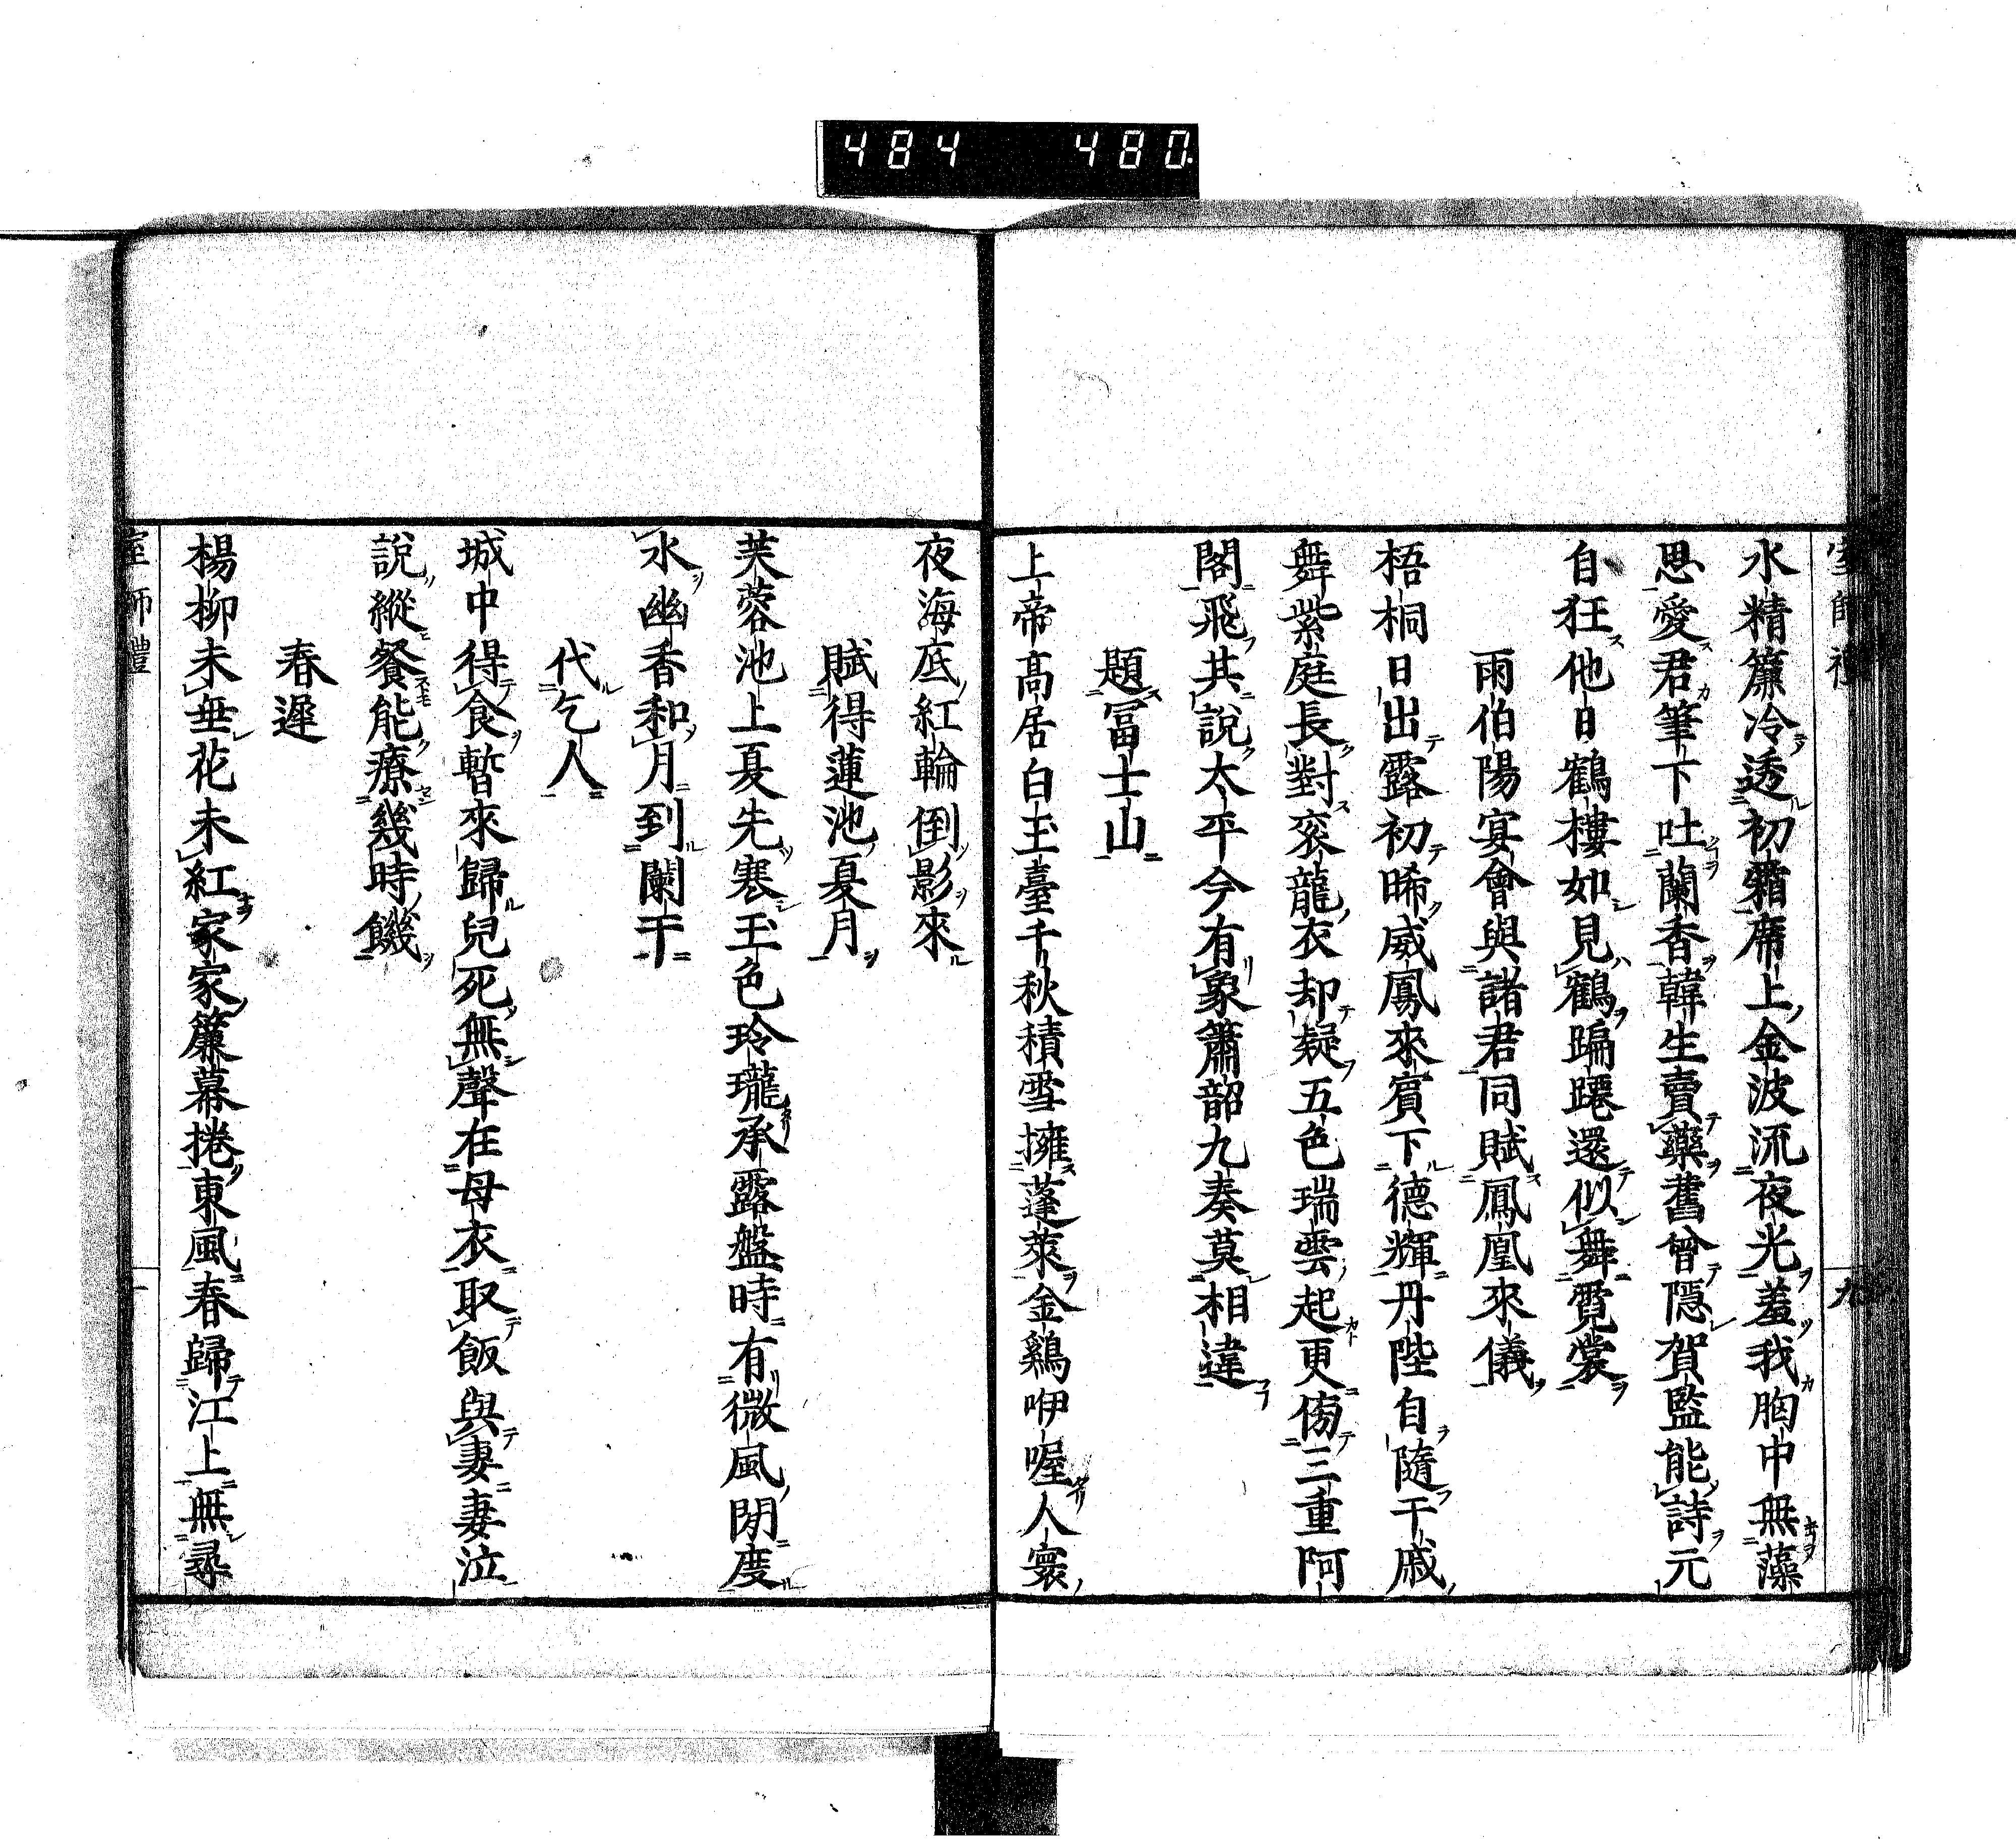 484 480
室師禮 九
水精簾冷透初霜席上金波流夜光羞我胸中無藻
思愛君筆下吐蘭香韓生賣藥舊曾隱賀監能詩元
自狂他日鶴樓如見鶴蹁躚還似舞霓裳
雨伯陽宴會與諸君同賦鳳凰來儀
梧桐日出露初晞威鳳來賓下德輝丹陛自隨干戚
舞紫庭長對袞龍衣却疑五色瑞雲起更傍三重阿
閣飛其說太平今有象簫韶九奏莫相違
題冨士山
上帝高居白玉臺千秋積雪擁蓬萊金鷄咿喔人寰
夜海底紅輪倒影來
賦得蓮池夏月
芙蓉池上夏先寒玉色玲瓏承露盤時有微風閒度
水幽香和月到闌干
代乞人
城中得食暫來歸兒死無聲在母衣取飯與妻妻泣
說縱餐能療幾時饑
春遲
楊柳未垂花未紅家家簾幕捲東風春歸江上無尋
室師禮